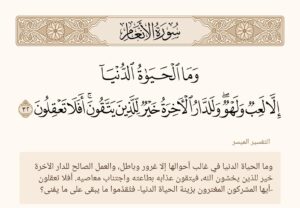 سورة الأنعام
وَمَا الْحَيَوٰةُ الدُّنْيَآ
إِلَّا لَعِبٌ وَلَهْوٌ ۖ وَلَلدَّارُ الْآخِرَةُ خَيْرٌ لِّلَّذِينَ يَتَّقُونَ ۗ أَفَلَا تَعْقِلُونَ ٣٢
التفسير الميسر
وما الحياة الدنيا في غالب أحوالها إلا غرور وباطل، والعمل الصالح للدار الآخرة
خير للذين يخشون الله، فيتقون عذابه بطاعته واجتناب معاصيه. أفلا تعقلون
-أيها المشركون المغترون بزينة الحياة الدنيا- فتقدِّموا ما يبقى على ما يفنى؟